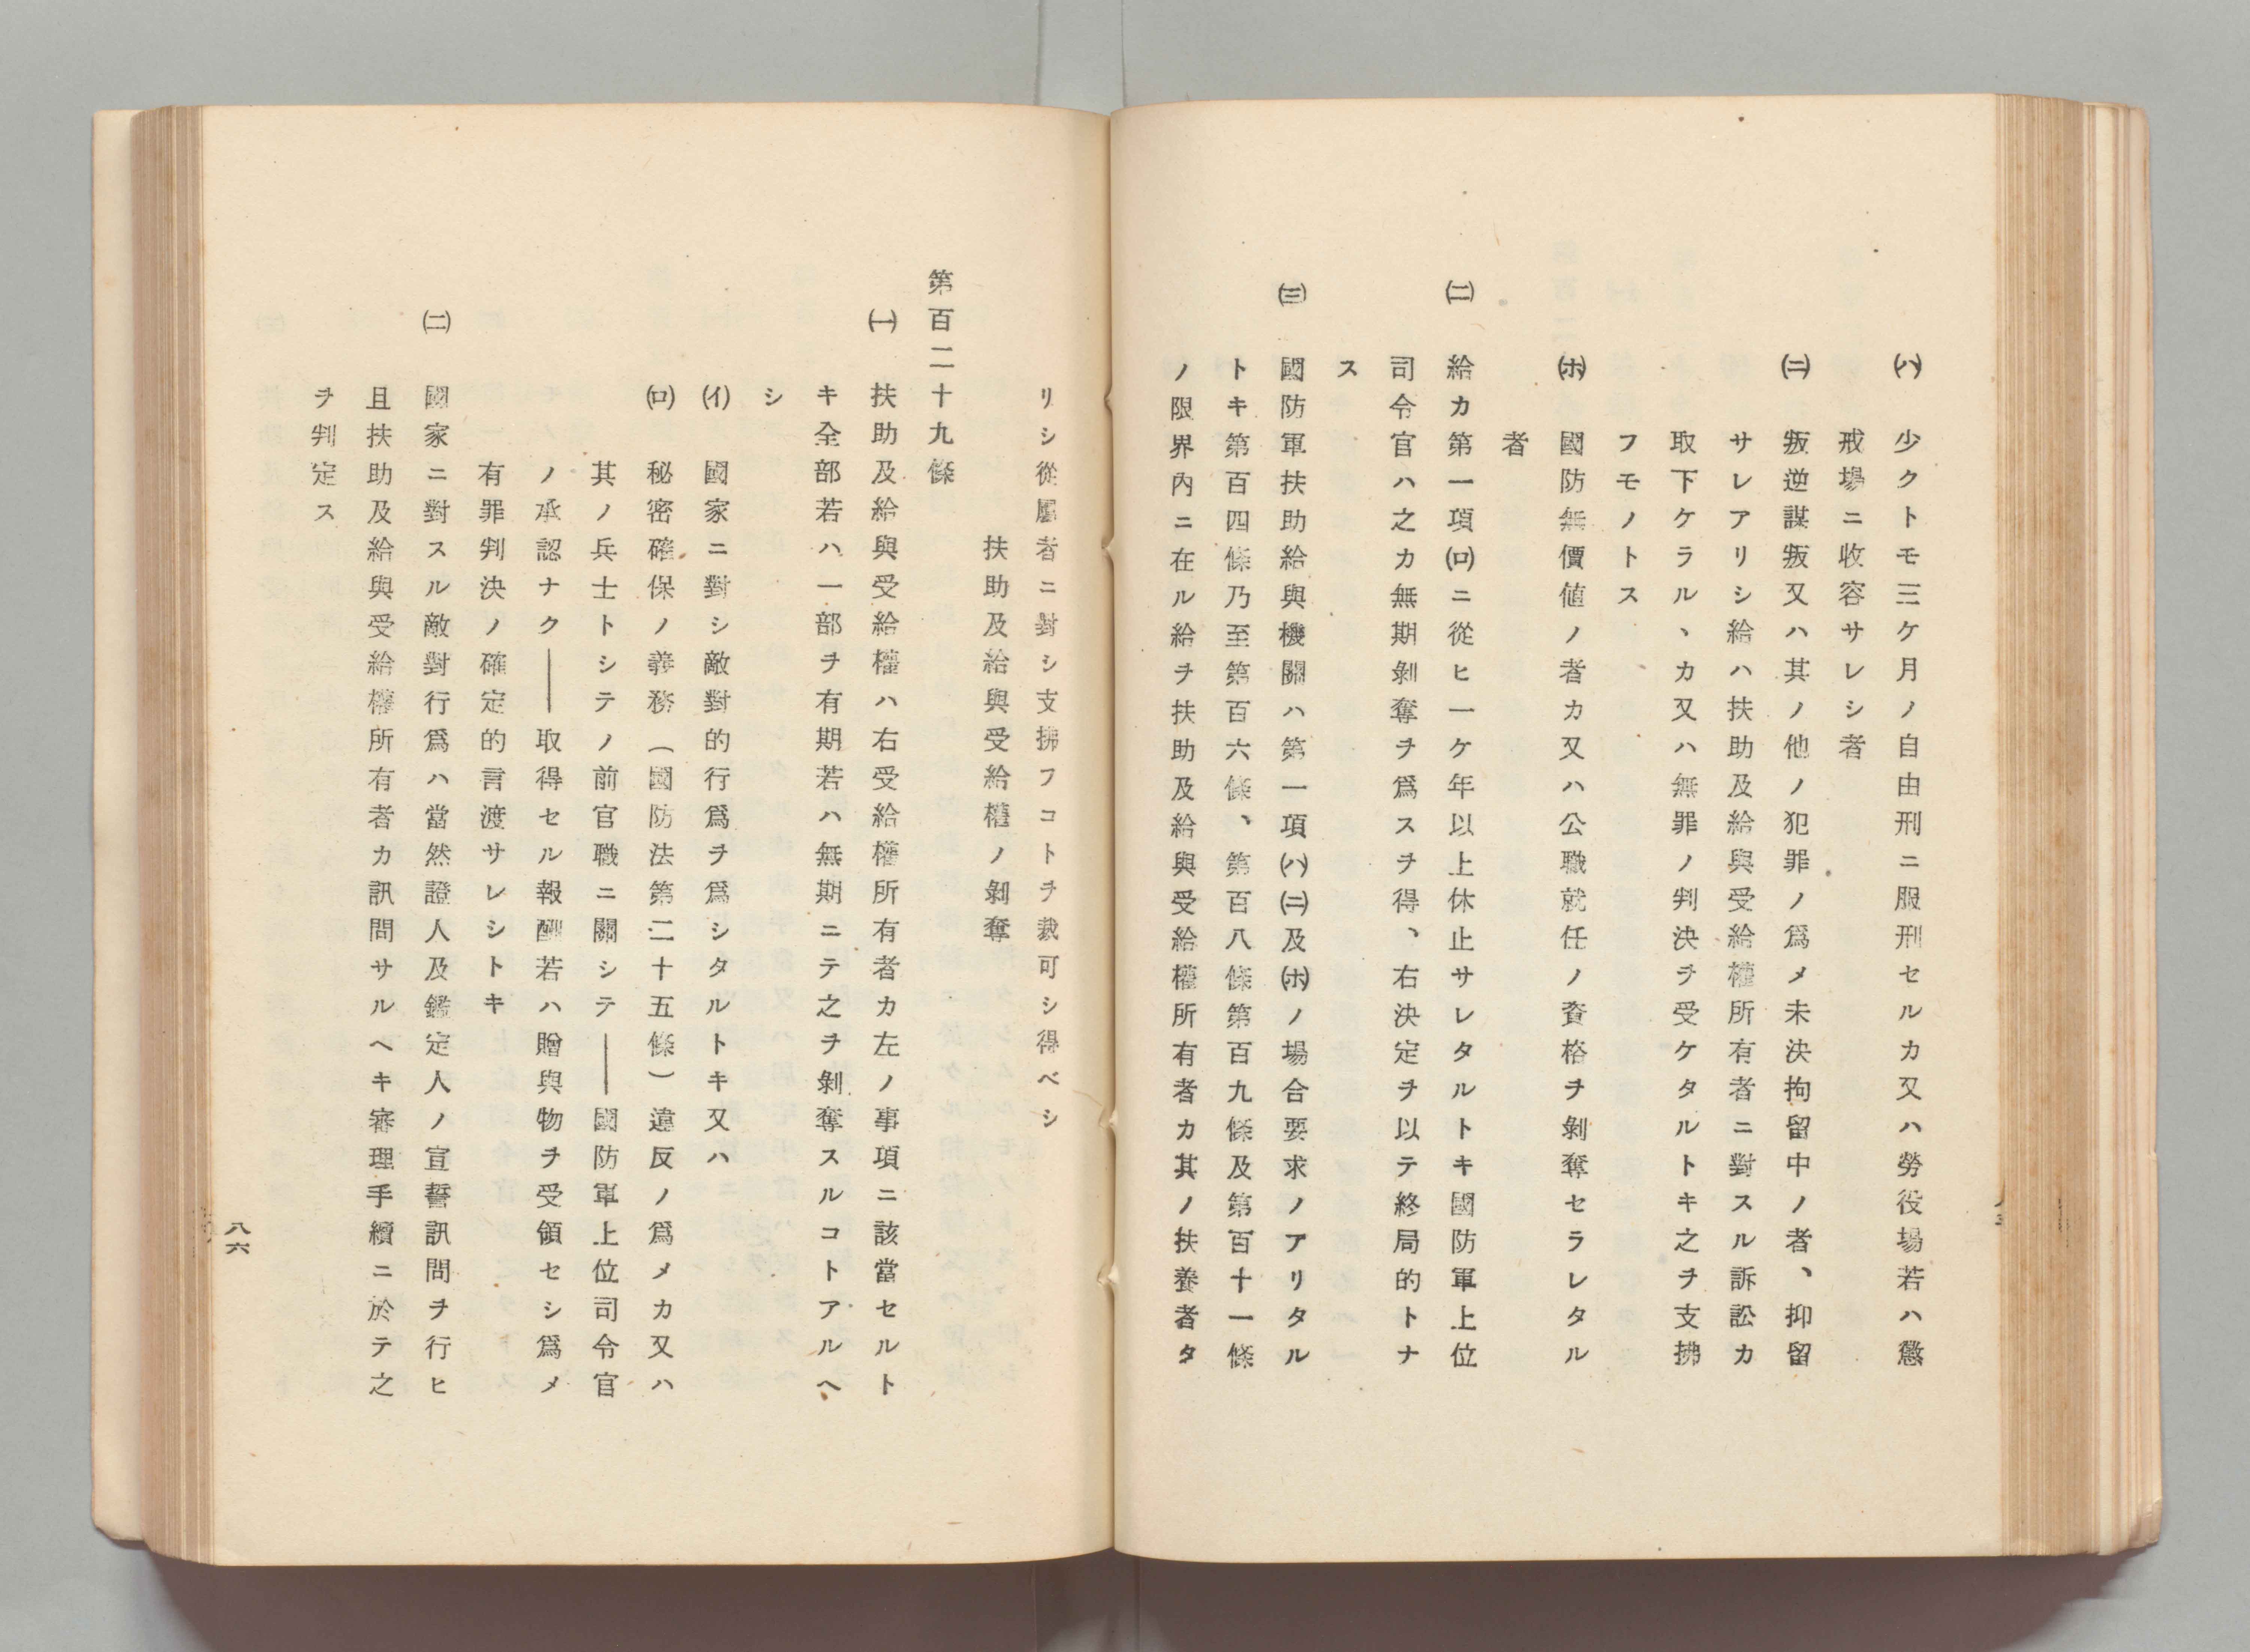 ㈥ 少クトモ三ケ月ノ自由刑ニ服刑セルカ又ハ勞役場若ハ懲
戒場ニ收容サレシ者
㈡ 叛逆謀叛又ハ其ノ他ノ犯罪ノ爲メ未決拘留中ノ者、抑留
サレアリシ給ハ扶助及給與受給權所有者ニ對スル訴訟カ
取下ケラル、カ又ハ無罪ノ判決ヲ受ケタルトキ之ヲ支拂
フモノトス
(ホ) 國防無價値ノ者カ又ハ公職就任ノ資格ヲ剝奪セラレタル
者
㈡ 給カ第一項(ロ)ニ從ヒ一ケ年以上休止サレタルトキ國防軍上位
司令官ハ之カ無期剝奪ヲ爲スヲ得、右決定ヲ以テ終局的トナ
ス
㈢ 國防軍扶助給與機關ハ第一項(ハ)(ニ)及(ホ)ノ場合要求ノアリタル
トキ第百四條乃至第百六條、第百八條第百九條及第百十一條
ノ限界內ニ在ル給ヲ扶助及給與受給權所有者カ其ノ扶養者タ
リシ從屬者ニ對シ支拂フコトヲ裁可シ得ベシ
扶助及給與受給權ノ剝奪
第百二十九條
㈠ 扶助及給與受給權ハ右受給權所有者カ左ノ事項ニ該當セルト
キ全部若ハ一部ヲ有期若ハ無期ニテ之ヲ剝奪スルコトアルヘ
シ
(イ) 國家ニ對シ敵對的行爲ヲ爲シタルトキ又ハ
(ロ) 秘密確保ノ義務(國防法第二十五條)違反ノ爲メカ又ハ
其ノ兵士トシテノ前官職ニ關シテ――國防軍上位司令官
ノ承認ナク――取得セル報酬若ハ贈與物ヲ受領セシ爲メ
有罪判決ノ確定的言渡サレシトキ
㈡ 國家ニ對スル敵對行爲ハ當然證人及鑑定人ノ宣誓訊問ヲ行ヒ
且扶助及給與受給權所有者カ訊問サルヘキ審理手續ニ於テ之
ヲ判定ス
八六